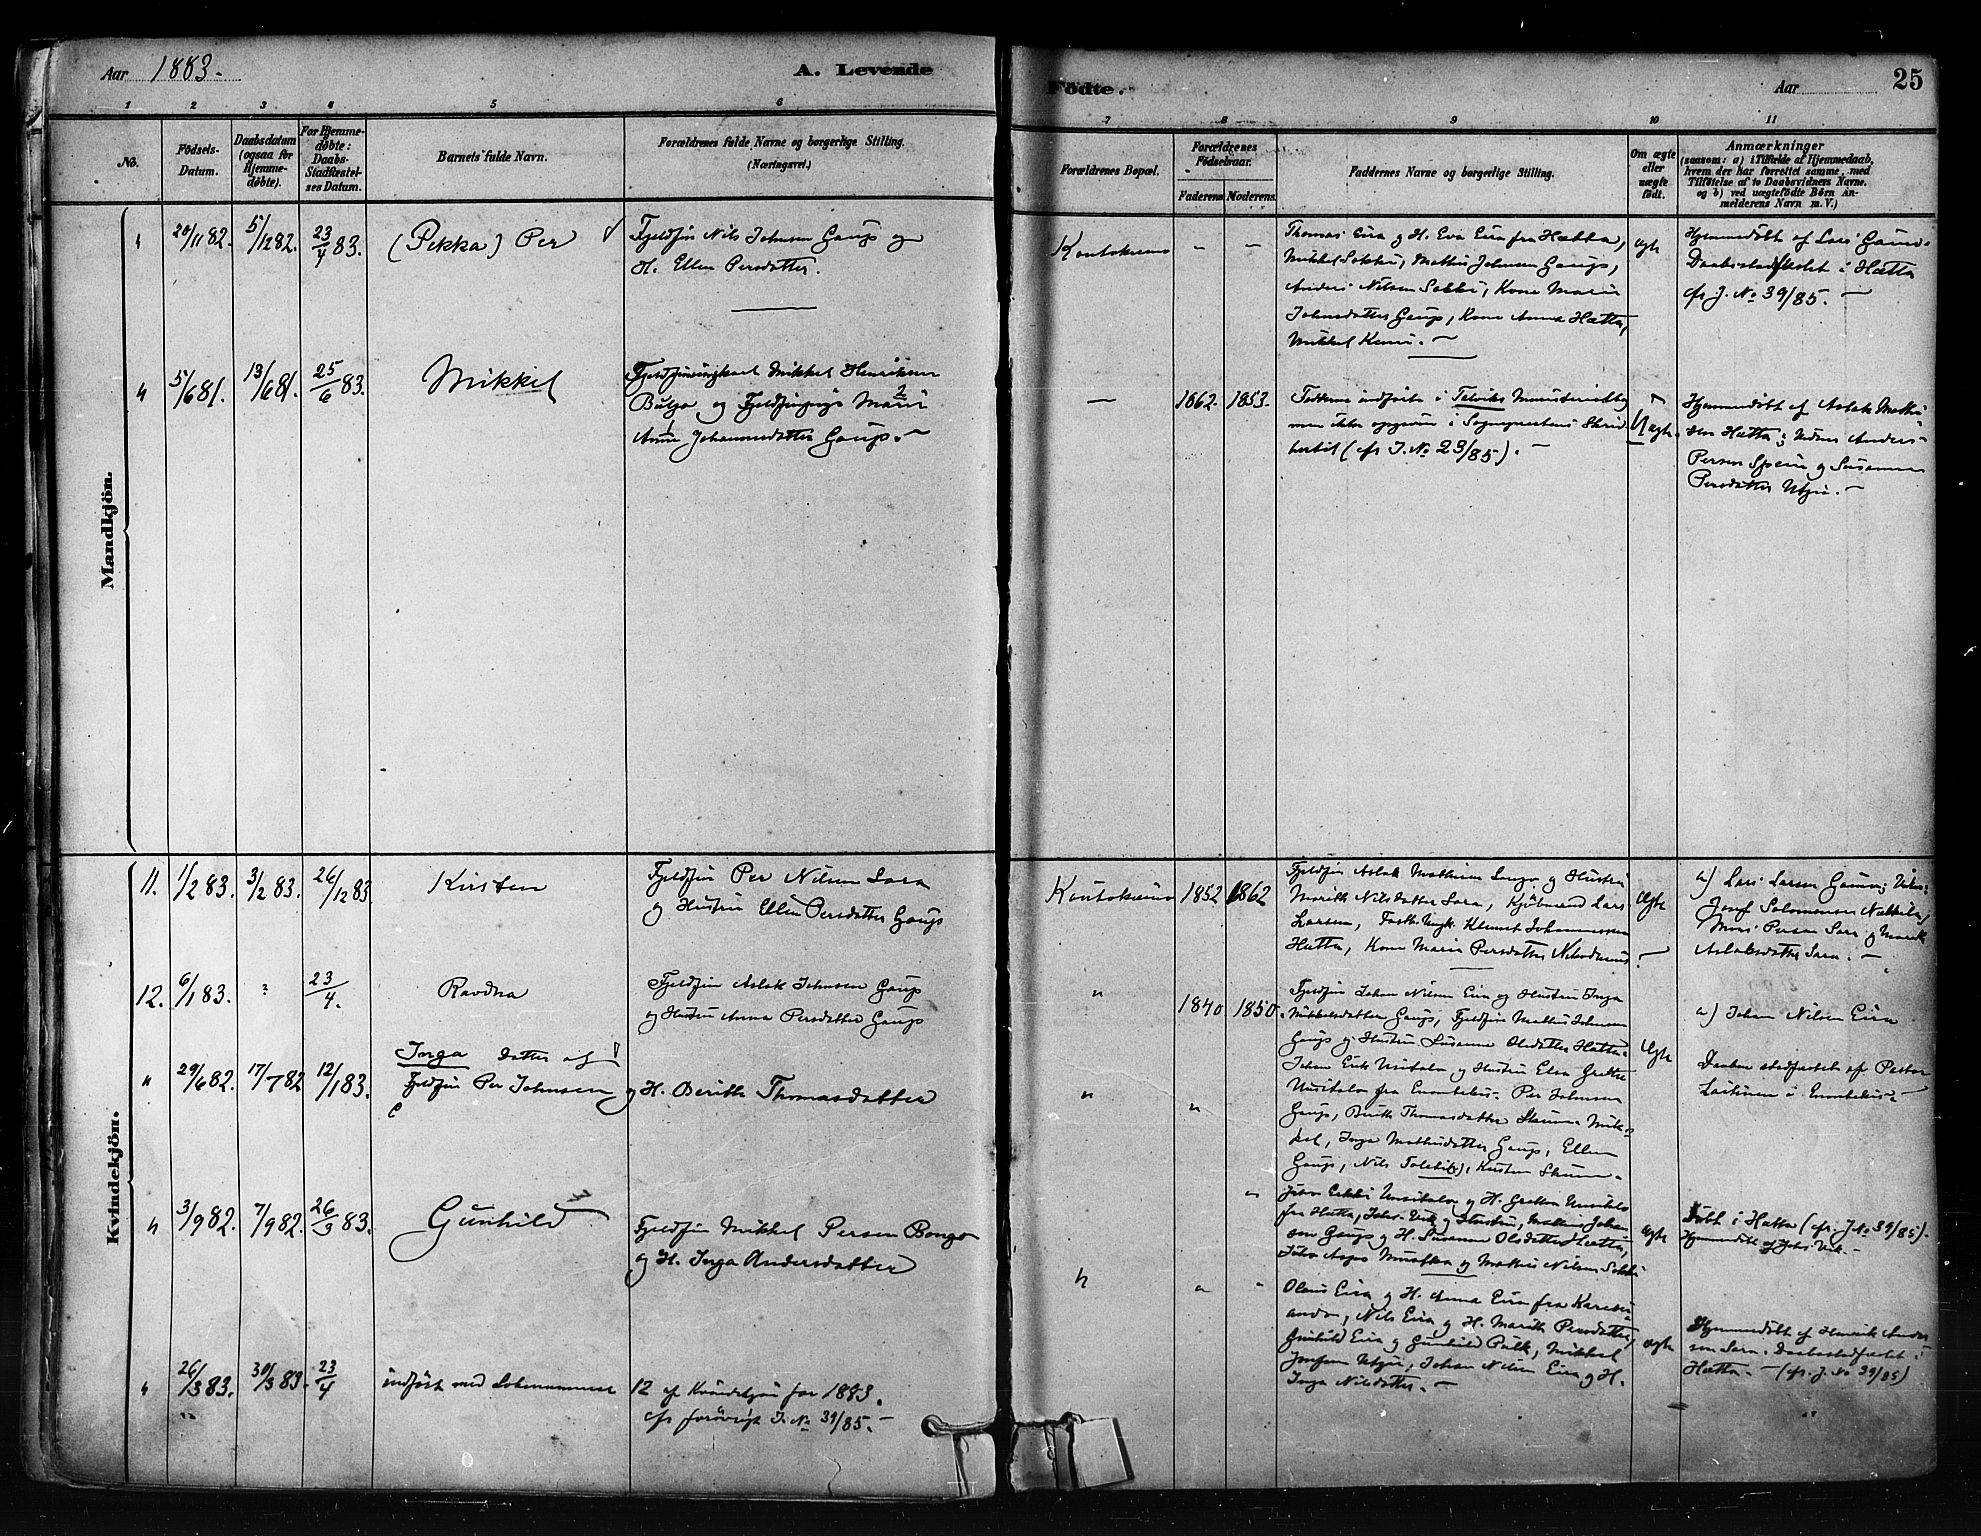 Aar 1883.
A. Levende
Födte.
Aar
25
1 2 3 4 5 6
7 8 9 10 11
No.
Fødsels-
Datum.
Daabsdatum
(ogsaa for
Hjemme-
døbte).
For Hjemme-
døbte:
Daabs-
Stadfæstel-
ses Datum.
Barnets fulde Navn.
Forældrenes fulde Navne og borgerlige Stilling.
(Næringsvei.)
Forældrenes Bopæl.
Forældrenes
Fødselsaar.
Faderens
Moderens.
Faddernes Navne og borgerlige Stilling.
Om ægte
eller
uægte
født.
Anmærkninger
(saasom: a) i Tilfælde af Hjemmedaab,
hvem der har forrettet samme, med
Tilføielse af to Daabsvidners Navne,
og b) ved uægtefødte Børn An-
melderens Navn m. V.)
Mandkjön.
20/11 82. 5/12 82. 23/4 83. (Pekka) Per
Fjeldfin Nils Johnsen Gaup og
H. Ellen Persdatter.
Koutokeino - -
Thomas Eira og H. Eva Eira fra Hætta,
Mikkel Sokki, Mathis Johnsen Gaup,
Anders Nilsen Sokki, Kone Marie
Johnsdatter Gaup, Kone Anna Hætta,
Mikkel Kemi. -
ægte
Hjemmedöbt af Lars Gaino.
Daabsstadfæstet i Hætta
cfr J. No 39/85. -
" 5/6 81. 13/6 81. 25/6 83. Mikkel
Fjeldfinungkarl Mikkel Henriksen
Buljo og Fjeldfinpige Marit
Anne Johannesdatter Gaup. -
- 1862. 1853.
Fadderne indförte i Talviks Ministerialbog
men ikke opgivne i Sognepræstens Skrid
hertil (cfr J. No 23/85). -
Uægte.
Hjemmedöbt af Aslak Mathi-
sen Hætta; Vidner Anders
Persen Spein og Susanna
Persdatter Utsi. -
Kvindekjön.
11. 1/2 83. 3/2 83. 26/12 83 Kirsten
Fjeldfin Per Nilsen Sara
og Hustru Ellen Persdatter Gaup
Koutokeino 1852 1862
Fjeldfin Aslak Mathisen Longo og Hustru
Marith Nilsdatter Sara, Kjöbmand Lars
Larsen, Fasth. Ungk. Klemet Johannessen
Hætta, Kone Marie Persdatter Nikodemus
Ægte
a) Lars Larsen Gaino; Vidn:
Josef Salomonsen Näkkila,
Mons Persen Sara og Marith
Aslaksdatter Sara. -
12. 6/1 83. ? 23/4. Ravdna
Fjeldfin Aslak Johnsen Gaup
og Hustru Anna Persdatter Gaup
" 1840 1850.
Fjeldfin Johan Nilsen Eira og Hustru Inga
Mikkelsdatter Gaup, Fjeldfin Mathis Johnsen
Gaup og Hustru Susanna Olsdatter Hætta.
Ægte
a) Johan Nilsen Eira
" 29/6 82. 17/7 82 12/1 83. Inga datter af
Fjeldfin Per Johnsen og H. Berith Thomasdatter
" "
Johan Erik Uusitalo og Hustru Elsa Grethe
Uusitalo fra Enontekis. Per Johnsen
Gaup, Berith Thomasdatter Skum. Mik-
kel, Inga Mathisdatter Gaup, Ellen
Gaup, Nils, Kirsten Skum -
Daaben stadfæstet af Pastor
Laitinen i Enontekis. -
" 3/9 82. 7/9 82. 26/3 83. Gunhild
Fjeldfin Mikkel Persen Bongo
og H. Inga Andersdatter
"
Uusitalo og H. Grethe Uusitalo
fra Hætta, og Hustru, Mathis Johan
sen Gaup og H. Susanna Olsdatter Hætta,
og Mathis Nilsen Sokki
ægte
Döbt i Hætta (cfr. J. No 39/85).
Hjemmedöbt af
" 26/3 83. 30/3 83. 23/4 indfört med Löbenummer 12 af Kvindekjön for 1883.
cfr forövrigt J. No 39/85. -
" " "
Olaus Eira og H. Anna Eira fra Karesu-
ando, Nils Eira og H. Marith Persdatter,
Gunhild Eira og Gunhild Pulk, Mikkel
Josefsen Utsi, Johan Nilsen Eira og H.
Inga Nilsdatter. -
ægte
Hjemmedöbt af Henrik Ander
sen Sara. Daabsstadfæstet i
Hætta. - (cfr. J. No 39/85)